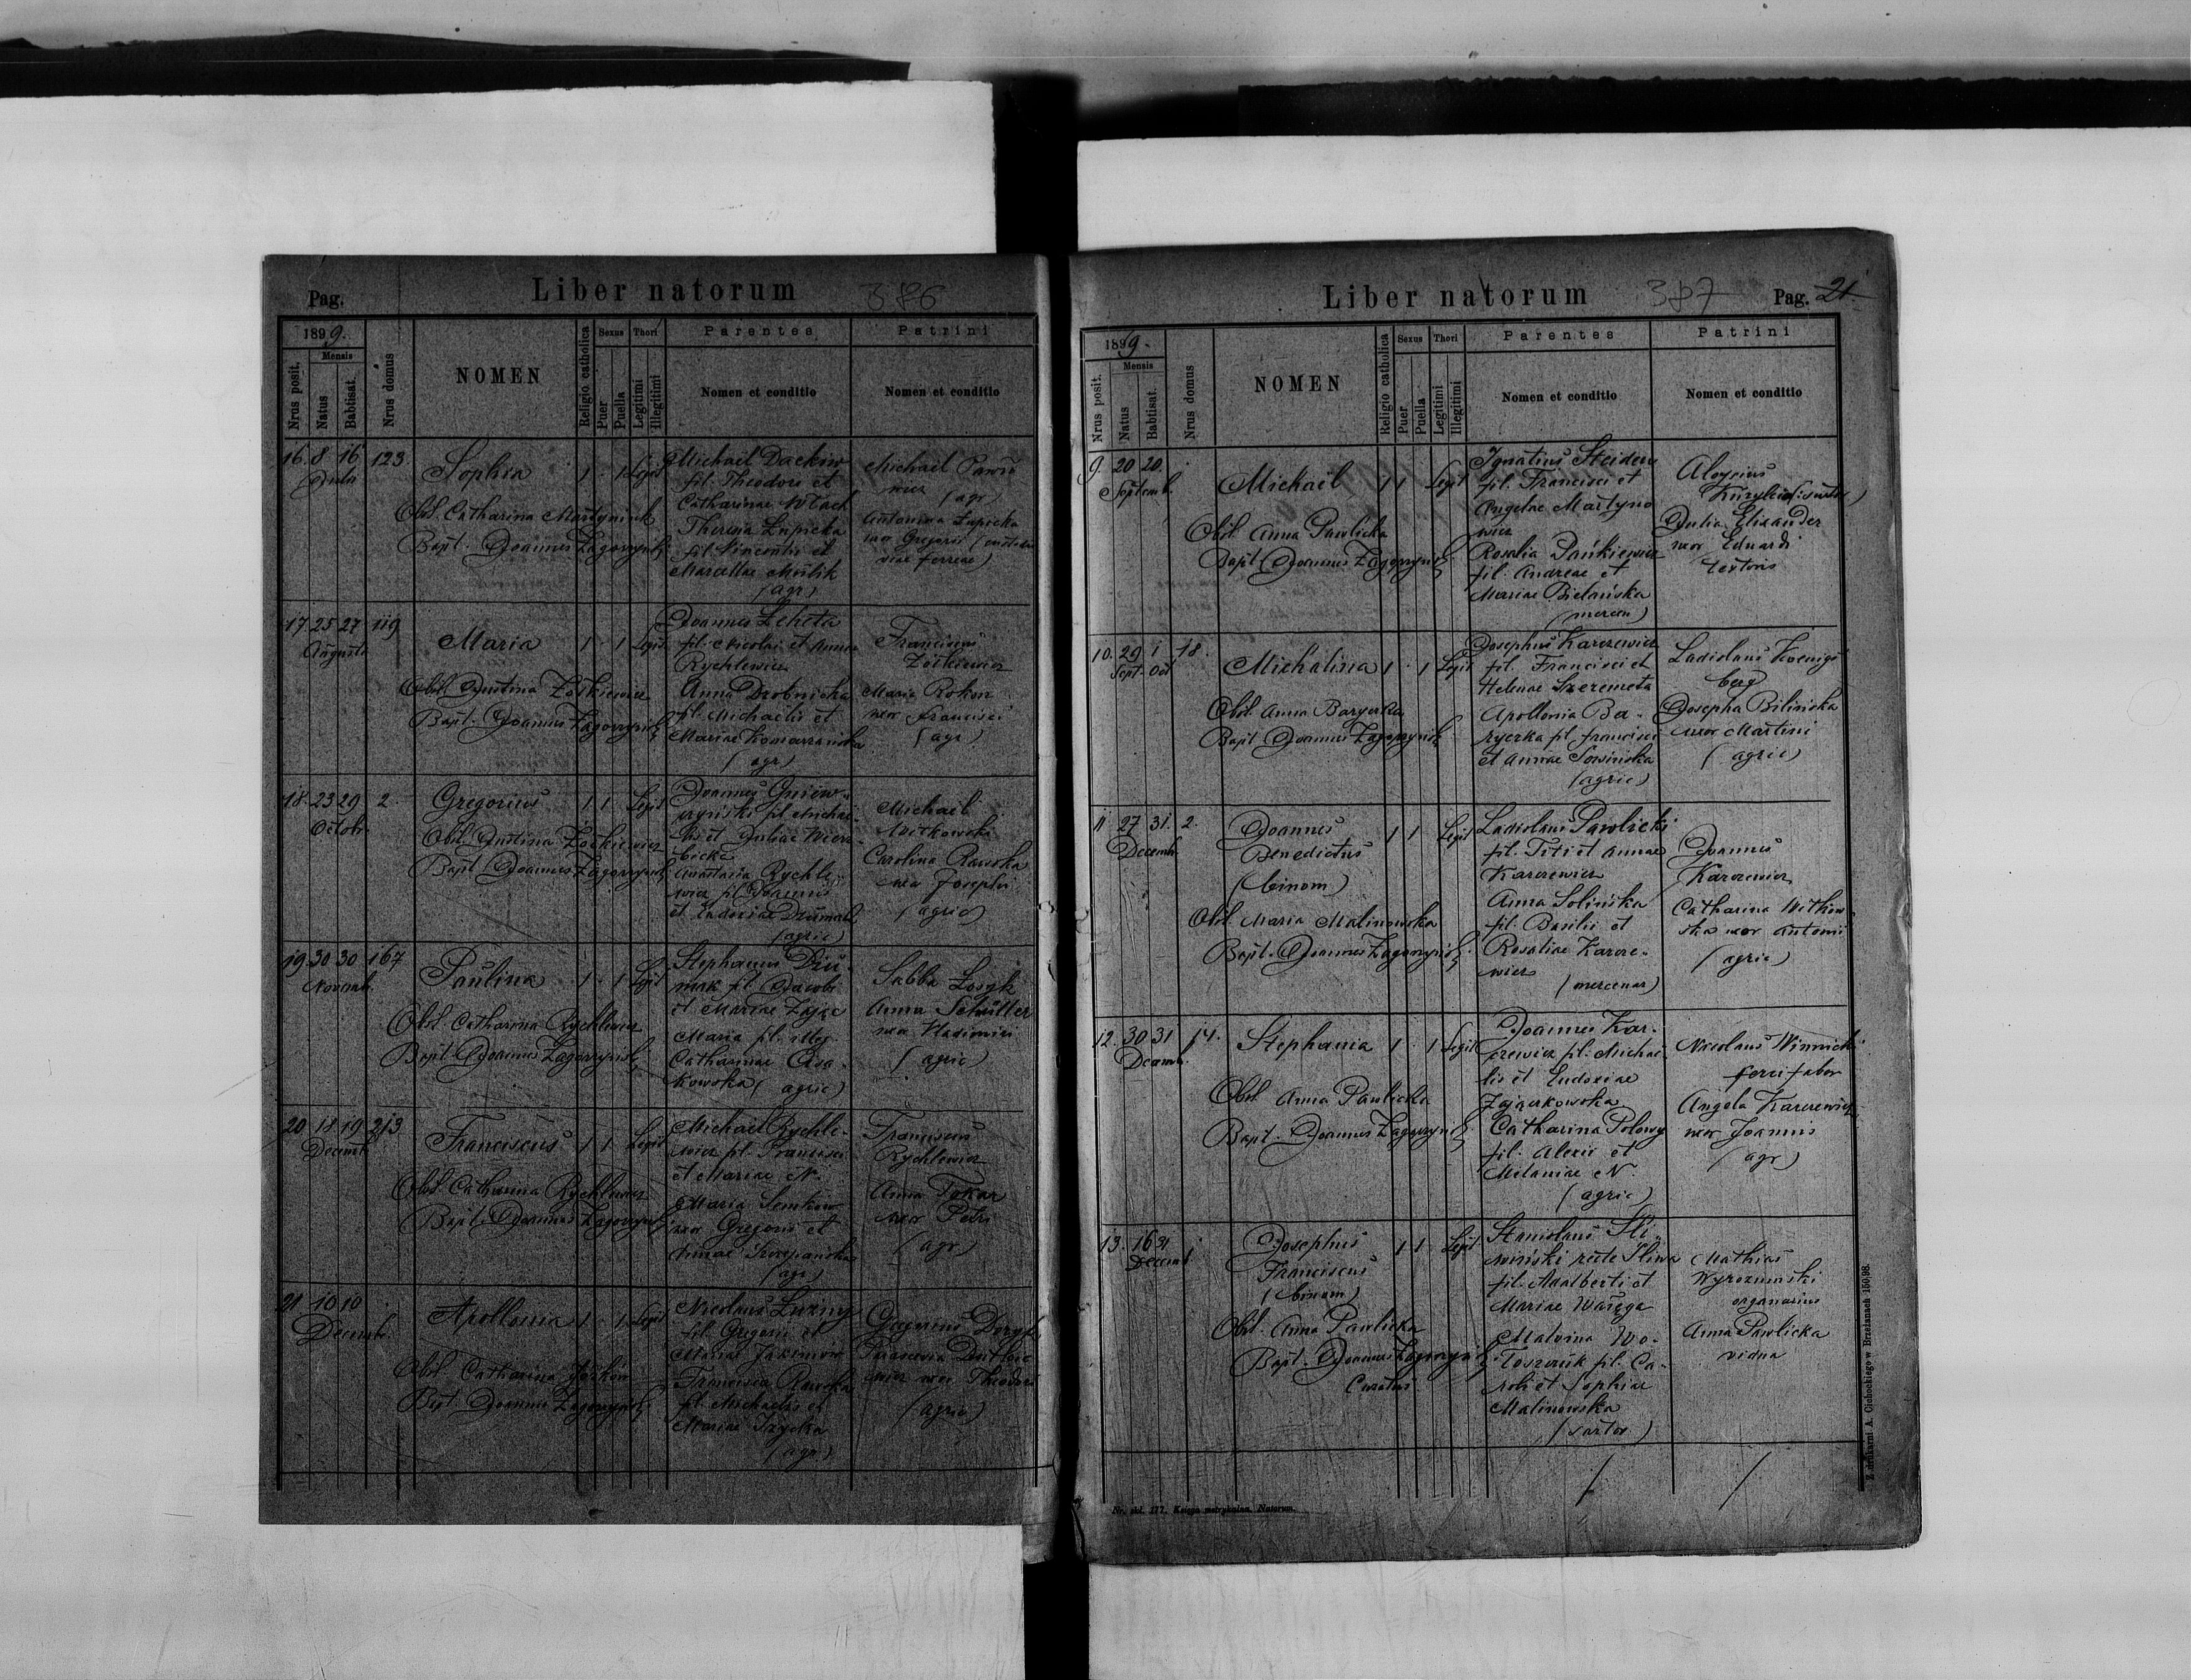 Pag.
Liber natorum
386
1899.
Mensis
Nrus posit.
Natus
Babtisat
Nrus domus
NOMEN
Religio catholica
Sexus
Puer
Puella
Thori
Legitimi
Illegitimi
Parentes
Nomen et conditio
Patrini
Nomen et conditio
16. 8 16 123
Sophia
1 · 1 Legit
Obst. Catharina Martyniuk
Bapt. Joannes
Michael Dackiw
fil. Theodori et
Catharinae
Theresia Łupicka
fil. Vincentii et
Marcellae
(agr)
Michael
(agr)
Antonina Łupicka
uxor Gregorii
viae ferreae)
17. 25 27 119
Augusti
Maria
1 · 1 Legit
Obst. Justina Żółkiewicz
Bapt. Joannes
Joannes Leheta
fil. Nicolai et Annae
Rychlewicz
Anna Drobnicka
fil. Michaelis et
Mariae
(agr)
Franciscus
Żółkiewicz
Maria
uxor Francisci
(agr)
18. 23 29 2
Octob.
Gregorius
1 1 Legit
Obst. Justina Żółkiewicz
Bapt. Joannes
Joannes Gniew-
fil. Michae-
lis et Juliae Wierz-
bicka
Anastasia Rychle-
wicz fil. Joannis
et Eudoxiae
(agric)
Michael
Witkowski
Carolina Rawska
uxor Josephi
(agric)
19. 30 30 167
Novemb.
Paulina
1 · 1 Legit
Obst. Catharina Rychlewicz
Bapt. Joannes
Stephanus
fil. Jacobi
et Mariae Zając
Maria fil. illeg
Catharinae
kowska (agric)
Sabba Łosyk
Anna Schüller
uxor Vladimiri
(agric)
20 18 19 213
Decemb.
Franciscus
1 1 Legit
Obst. Catharina Rychlewicz
Bapt. Joannes
Michael Rychle-
wicz fil. Francisci
et Mariae N.
Maria Semkow
Gregorii et
Annae Szczepańska
(agr)
Franciscus
Rychlewicz
Anna Tokar
uxor Petri
(agr)
21 10 10
Decemb.
Apollonia
1 · 1 Legit
Obst. Catharina
Bapt. Joannes
Nicolaus Luzny
fil. Gregorii et
Mariae
Francisca Rawska
fil. Michaelis et
Mariae
(agr)
uxor Theodori
(agric)
Liber natorum
387
Pag. 21
1899.
Mensis
Nrus posit.
Natus
Babtisat
Nrus domus
NOMEN
Religio catholica
Sexus
Puer
Puella
Thori
Legitimi
Illegitimi
Parentes
Nomen et conditio
Patrini
Nomen et conditio
9. 20 20.
Septemb.
Michaël
1 1 Legit
Obst. Anna Pawlicka
Bapt. Joannes
Ignatius
fil. Francisci et
Angelae Martyno
wicz
Rosalia Pańkiewicz
fil. Andreae et
Mariae Bielańska
(mercen)
Aloysius
Julia Elixander
uxor Eduardi
textoris
10. 29 1 18.
Sept. Oct
Michalina
1 · 1 Legit
Obst. Anna Baryczka
Bapt. Joannes
Josephus Karczewicz
fil. Francisci et
Helenae Szeremeta
Apollonia Ba-
ryczka fil. Francisci
et Annae Sowińska
(agric)
Ladislaus Koenigs
berg
Josepha Bilińska
uxor Martini
(agric)
11 27 31. 2.
Decemb.
Joannes
Benedictus
(binom)
1 1 Legit
Obst. Maria Malinowska
Bapt. Joannes
Ladislaus Pawlicki
fil. Titi et Annae
Karczewicz
Anna Solińska
fil. Basilii et
Rosaliae Karcze-
wicz
(mercenar)
Joannes
Karczewicz
Catharina Witkow
ska uxor Antonii
(agric)
12. 30 31 14.
Decemb.
Stephania
1 · 1 Legit
Obst. Anna Pawlicka
Bapt. Joannes
Joannes Kar-
czewicz fil. Michae-
lis et Eudoxiae
Zajączkowska
Catharina Polowy
fil. Alexii et
Melaniae N.
(agric)
Nicolaus Winnicki
ferri faber
Angela Karczewicz
uxor Joannis
(agr)
13. 16 31
Decemb.
Josephus
Franciscus
(binom)
1 1 Legit
Obst. Anna Pawlicka
Bapt. Joannes
Curatus
Stanislaus Śli-
wiński recte Śliwa
fil. Adalberti et
Mariae Waręga
Malvina Wo-
łoszczuk fil. Ca-
roli et Sophiae
Malinowska
(sartor)
Mathias
Wyrozumski
organarius
Anna Pawlicka
vidua
Nr. skl. 177. Księga metrykalna. Natorum.
Z drukarni A. Cichockiego w Brzeżanach 150/98.